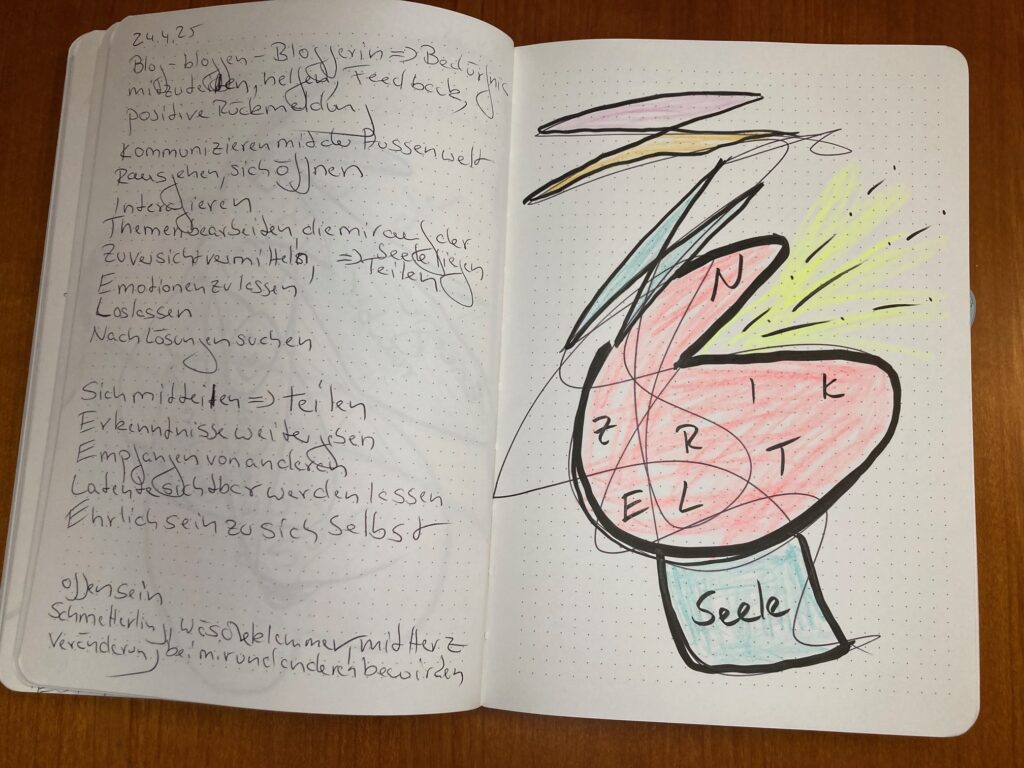 24.4.25
Blog - bloggen - Bloggerin => Bedürfnis
mitzuteilen, helfen, Feedback,
positive Rückmeldung
Kommunizieren mit der Aussenwelt
Rausgehen, sich öffnen
Interagieren
Themen bearbeiten, die mir auf der
Seele liegen
Zuversicht vermitteln, => teilen
Emotionen zulassen
Loslassen
Nach Lösungen suchen
Sich mitteilen => teilen
Erkenntnisse weitergeben
Empfangen von anderen
Latente sichtbar werden lassen
Ehrlich sein zu sich Selbst
offen sein
Schmetterling, Wäscheklammer, mit Herz
Veränderung bei mir und anderen bewirken
N
I K
Z R T
E L
Seele